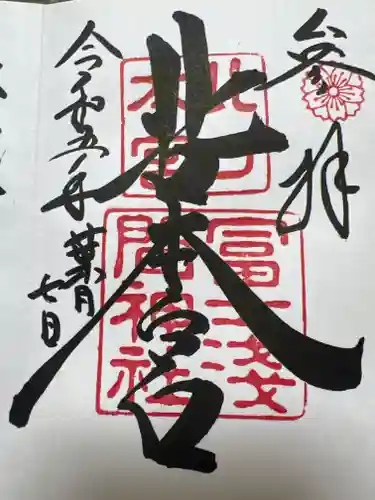 参拝
北口
本宮
冨士浅
間神社
北本宮
令和五年
葉月
七日